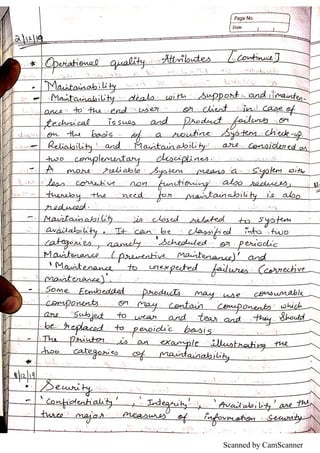 Page No.
Date
2/12/19
* Operational quality Attributes [Continue]
• Maintainability
- Maintainability deals with support and mainten-
ance to the end user or client in case of
technical issues and product failures or
on the basis of a routine system check-up
- Reliability and Maintainability are considered as
two complementary disciplines.
- A more reliable system means a system with
less corrective non functioning also reduces,
thereby the need for maintainability is also
reduced.
- Maintainability is closed related to system
availability. It can be classified into two
categories, namely 'Scheduled or periodic
Maintenance (preventive maintenance)' and
'Maintenance to unexpected failures (corrective
maintenance)'.
- Some Embedded products may use consumable
components or may contain components which
are subject to wear and tear and they should
be replaced to peroidic basis
- The printer is an example illustrating the
two categories of maintainability
*
4/12/19
Security
- 'Confidentiality', 'Integrity', 'Availability' are the
three major measures of information security
Scanned by CamScanner